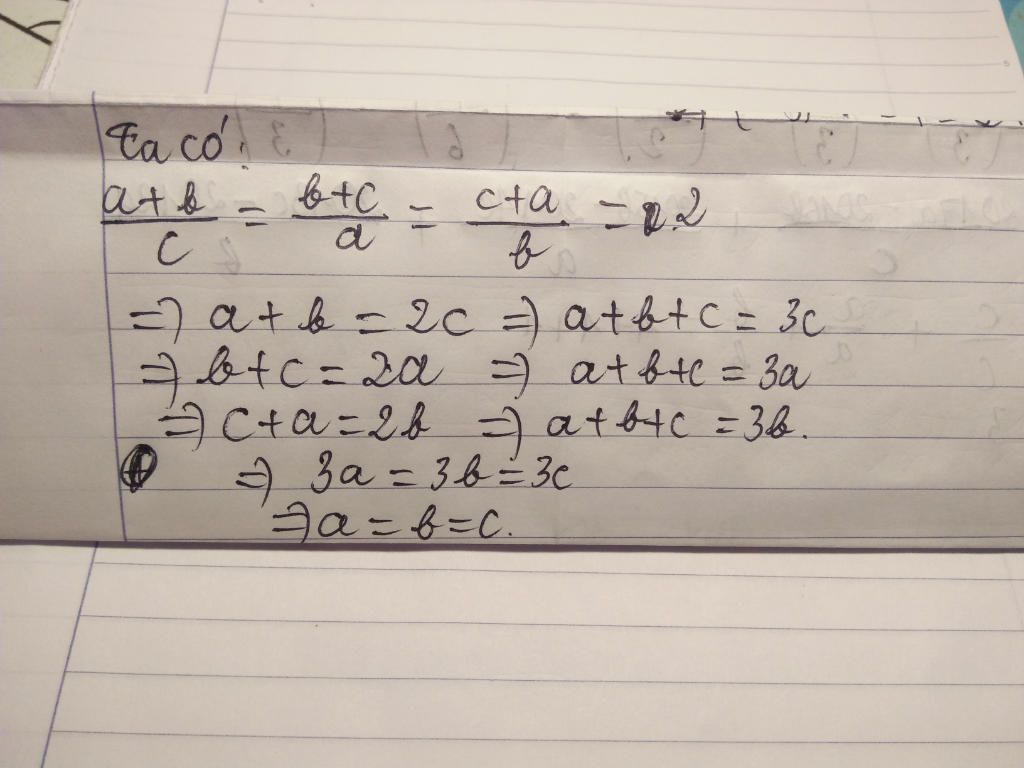 Ta có:
\frac{a+b}{c} = \frac{b+c}{a} = \frac{c+a}{b} = 2
=> a + b = 2c => a+b+c = 3c
=> b+c = 2a => a+b+c = 3a
=> c+a = 2b => a+b+c = 3b.
=> 3a = 3b = 3c
=> a = b = c.